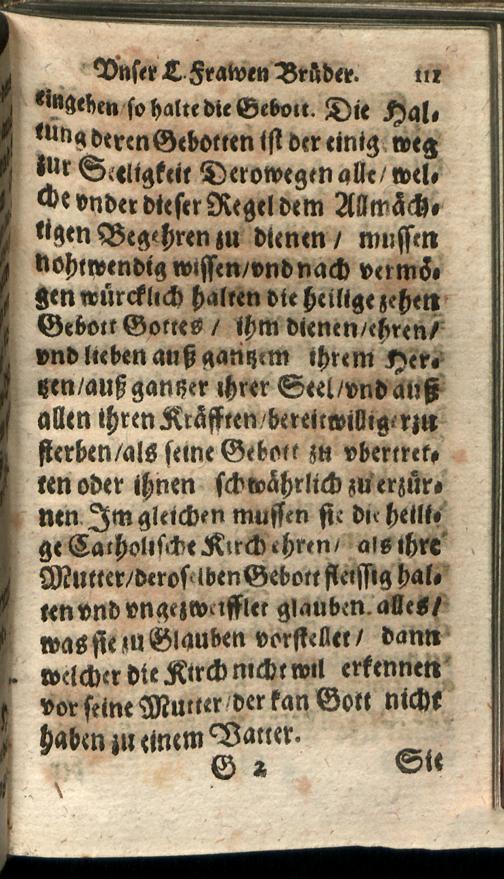 Vnser L. Frawen Brüder. 111
eingehen / so halte die Gebott. Die Hal-
tung deren Gebotten ist der einig weg
zur Seeligkeit Derowegen alle / wel-
che vnder dieser Regel dem Allmäch-
tigen Begehren zu dienen / mussen
nohtwendig wissen / vnd nach vermö-
gen würcklich halten die heilige zehen
Gebott Gottes / ihm dienen / ehren /
vnd lieben auß gantzem ihrem Her-
tzen / auß gantzer ihrer Seel / vnd auß
allen ihren Kräfften / bereitwilliger zu
sterben / als seine Gebott zu vbertret-
ten oder ihnen schwährlich zu erzür-
nen. Im gleichen mussen sie die heili-
ge Catholische Kirch ehren / als ihre
Mutter / deroselben Gebott fleissig hal-
ten vnd vngezweifflet glauben alles /
was sie zu Glauben vorstellet / dann
welcher die Kirch nicht wil erkennen
vor seine Mutter / der kan Gott nicht
haben zu einem Vatter.
G 2 Sie